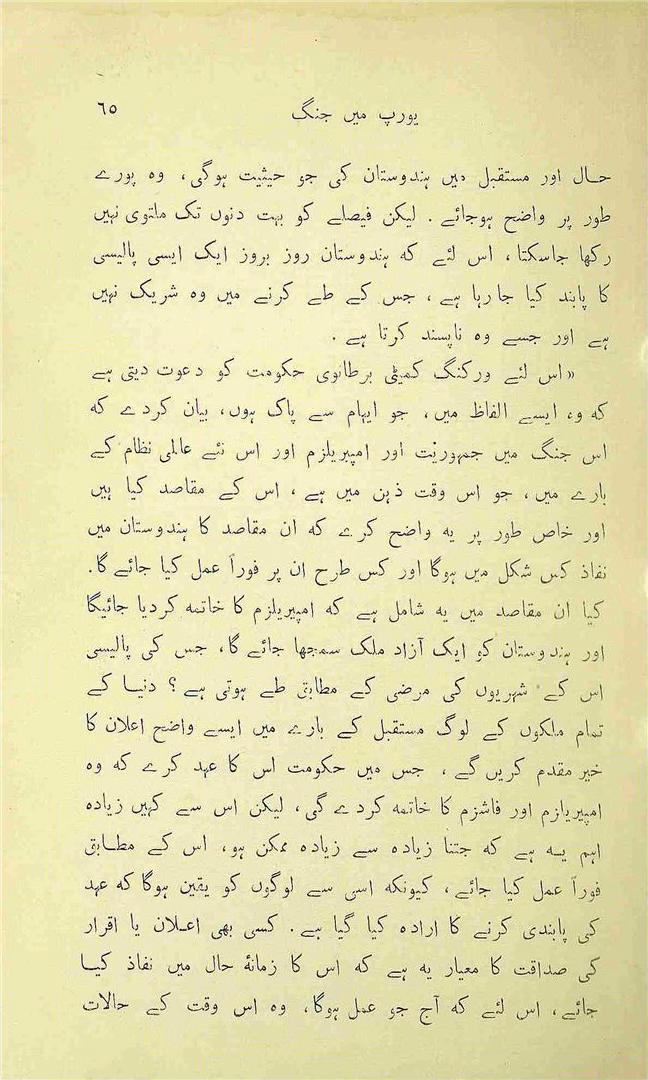 یورپ میں جنگ ٦٥
حال اور مستقبل میں ہندوستان کی جو حیثیت ہوگی، وہ پورے
طور پر واضح ہوجائے۔ لیکن فیصلے کو بہت دنوں تک ملتوی نہیں
رکھا جاسکتا، اس لئے کہ ہندوستان روز بروز ایک ایسی پالیسی
کا پابند کیا جارہا ہے، جس کے طے کرنے میں وہ شریک نہیں
ہے اور جسے وہ ناپسند کرتا ہے۔
«اس لئے ورکنگ کمیٹی برطانوی حکومت کو دعوت دیتی ہے
کہ وہ ایسے الفاظ میں، جو ایہام سے پاک ہوں، بیان کردے کہ
اس جنگ میں جمہوریّت اور امپیریلزم اور اس نئے عالمی نظام کے
بارے میں، جو اس وقت ذہن میں ہے، اس کے مقاصد کیا ہیں
اور خاص طور پر یہ واضح کرے کہ ان مقاصد کا ہندوستان میں
نفاذ کس شکل میں ہوگا اور کس طرح ان پر فوراً عمل کیا جائے گا۔
کیا ان مقاصد میں یہ شامل ہے کہ امپیریلزم کا خاتمہ کردیا جائیگا
اور ہندوستان کو ایک آزاد ملک سمجھا جائے گا، جس کی پالیسی
اس کے شہریوں کی مرضی کے مطابق طے ہوتی ہے؟ دنیا کے
تمام ملکوں کے لوگ مستقبل کے بارے میں ایسے واضح اعلان کا
خیر مقدم کریں گے، جس میں حکومت اس کا عہد کرے کہ وہ
امپیریلزم اور فاشزم کا خاتمہ کردے گی، لیکن اس سے کہیں زیادہ
اہم یہ ہے کہ جتنا زیادہ سے زیادہ ممکن ہو، اس کے مطابق
فوراً عمل کیا جائے، کیونکہ اسی سے لوگوں کو یقین ہوگا کہ عہد
کی پابندی کرنے کا ارادہ کیا گیا ہے۔ کسی بھی اعلان یا اقرار
کی صداقت کا معیار یہ ہے کہ اس کا زمانۂ حال میں نفاذ کیا
جائے، اس لئے کہ آج جو عمل ہوگا، وہ اس وقت کے حالات